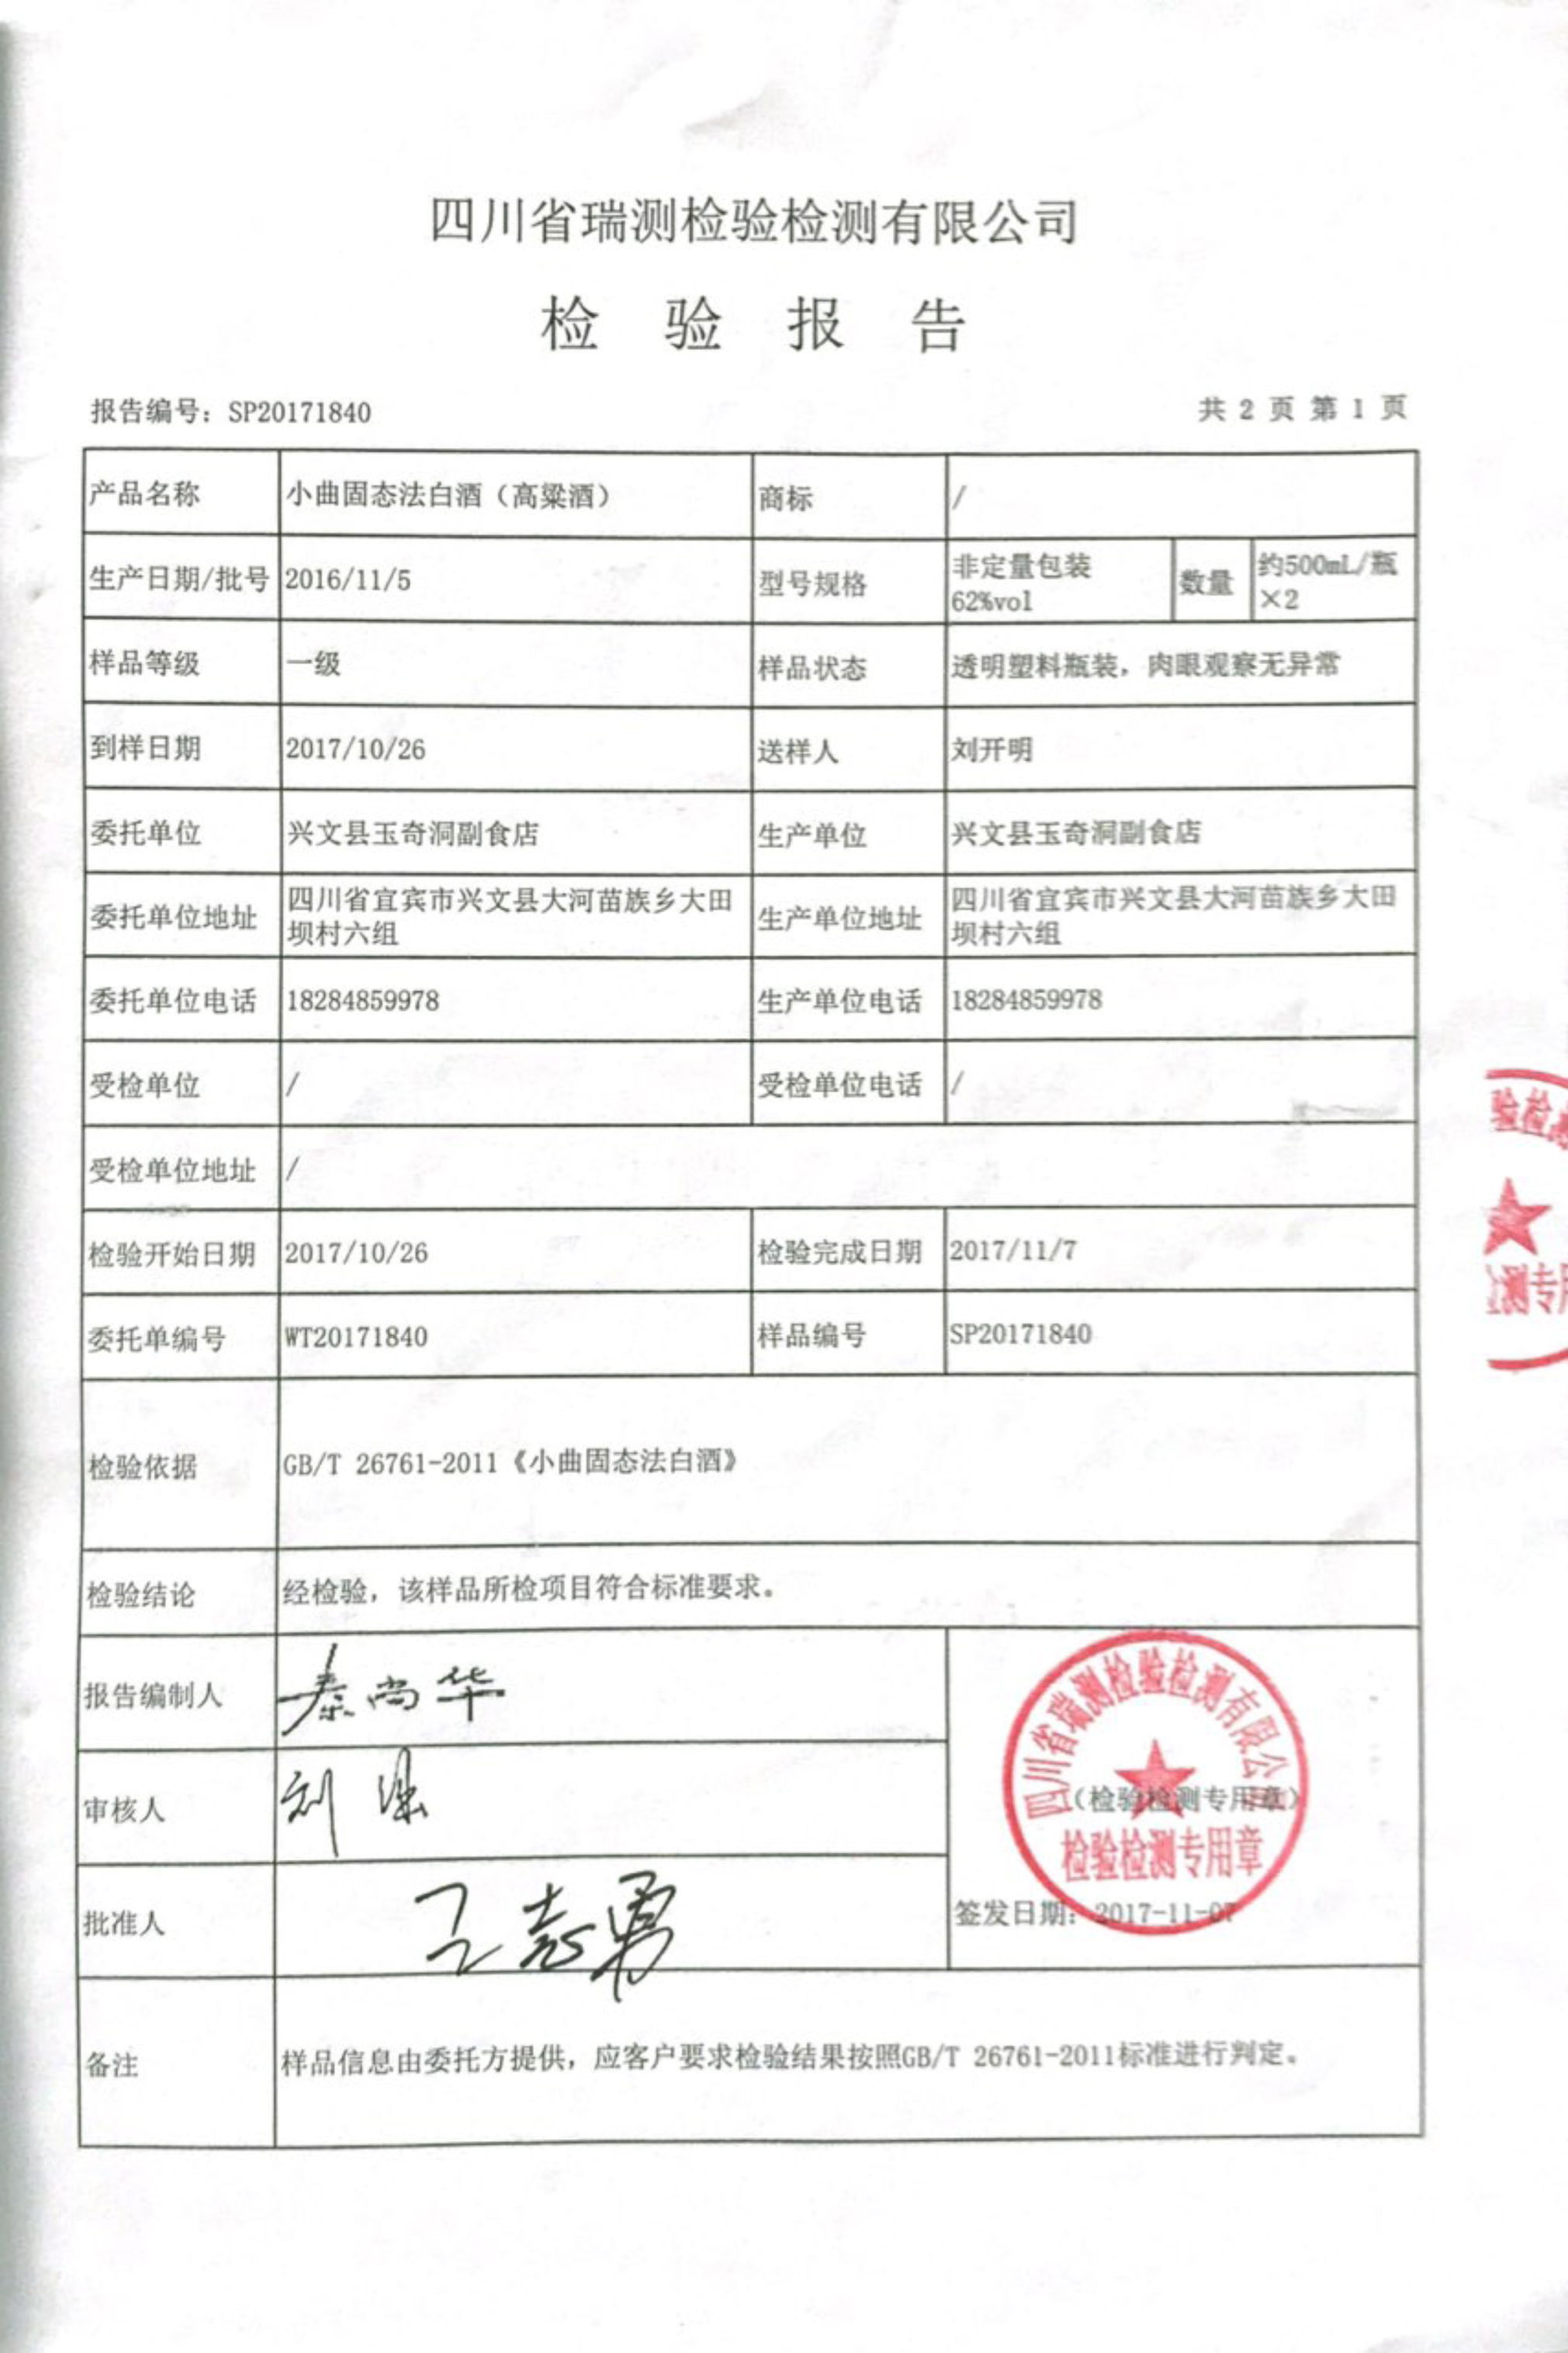 四川省瑞测检验检测有限公司
检 验 报 告
报告编号：SP20171840 共 2 页 第 1 页
产品名称 小曲固态法白酒（高粱酒） 商标 /
生产日期/批号 2016/11/5 型号规格 非定量包装 数量 约500mL/瓶
62%vol ×2
样品等级 一级 样品状态 透明塑料瓶装，肉眼观察无异常
到样日期 2017/10/26 送样人 刘开明
委托单位 兴文县玉奇洞副食店 生产单位 兴文县玉奇洞副食店
委托单位地址 四川省宜宾市兴文县大河苗族乡大田 生产单位地址 四川省宜宾市兴文县大河苗族乡大田
坝村六组 坝村六组
委托单位电话 18284859978 生产单位电话 18284859978
受检单位 / 受检单位电话 /
受检单位地址 /
检验开始日期 2017/10/26 检验完成日期 2017/11/7
委托单编号 WT20171840 样品编号 SP20171840
检验依据 GB/T 26761-2011《小曲固态法白酒》
检验结论 经检验，该样品所检项目符合标准要求。
报告编制人 秦尚华
审核人 刘
批准人 王志勇
四川省瑞测检验检测有限公司
（检验检测专用章）
检验检测专用章
签发日期：2017-11-07
备注 样品信息由委托方提供，应客户要求检验结果按照GB/T 26761-2011标准进行判定。
验检测
测专用